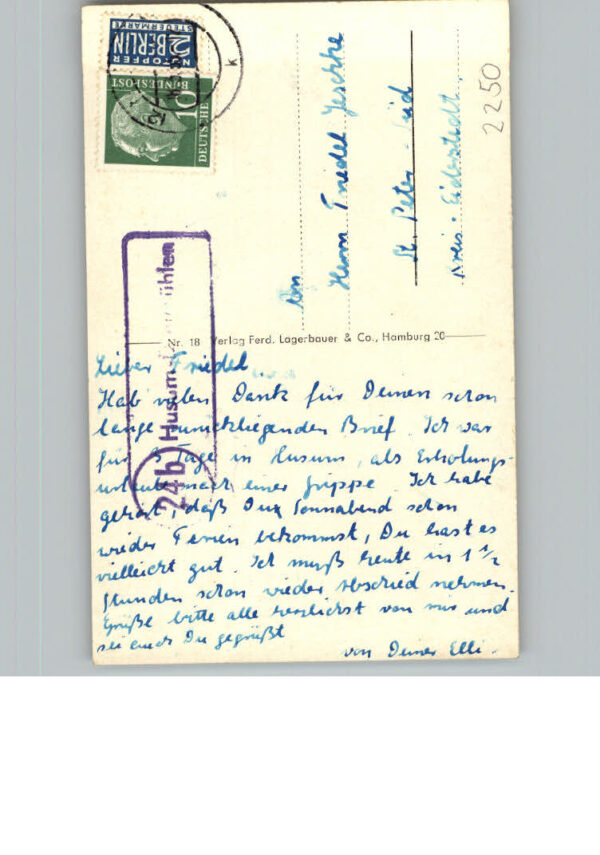 NOTOPFER
2 BERLIN
STEUERMARKE
DEUTSCHE
BUNDESPOST
10
k
2250
An
Herrn Friedel Jeschke
St. Peter-Süd
Kreis: Eiderstedt.
24b Husum
Nr. 18 Verlag Ferd. Lagerbauer & Co., Hamburg 20
Lieber Friedel,
Hab vielen Dank für Deinen schon
lange zurückliegenden Brief. Ich war
für 3 Tage in Husum, als Erholungs-
urlaub nach einer Grippe. Ich habe
gehört, daß Du Sonnabend schon
wieder Ferien bekommst, Du hast es
vielleicht gut. Ich muß heute in 1 1/2
Stunden schon wieder Abschied nehmen.
Grüße bitte alle herzlichst von mir und
sei auch Du gegrüßt
von Deiner Elli.